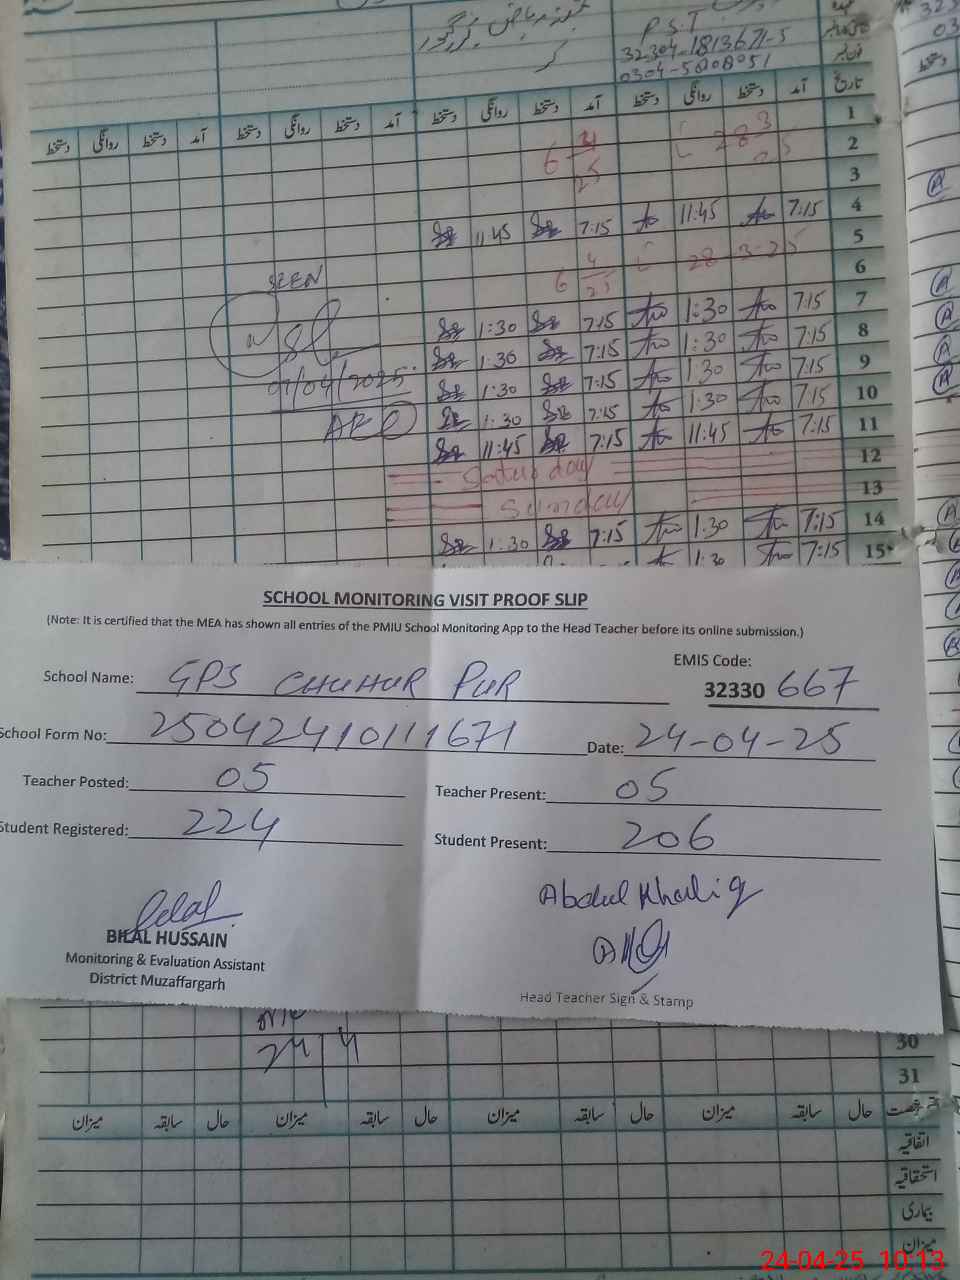 P.S.T
32304-1813671-5
0304-5808051
دستخط روانگی دستخط آمد دستخط روانگی دستخط آمد دستخط روانگی دستخط آمد دستخط روانگی دستخط آمد تاریخ
1
6 4 25 28 3 25 2
3
11:45 7:15 11:45 7:15 4
5
6 4 25 28 3-25 6
SEEN
1:30 7:15 1:30 7:15 7
1:30 7:15 1:30 7:15 8
1:30 7:15 1:30 7:15 9
07/04/2025
1:30 7:15 1:30 7:15 10
11:45 7:15 11:45 7:15 11
Saturday 12
Sunday 13
1:30 7:15 1:30 7:15 14
1:30 7:15 15
SCHOOL MONITORING VISIT PROOF SLIP
(Note: It is certified that the MEA has shown all entries of the PMIU School Monitoring App to the Head Teacher before its online submission.)
School Name: GPS CHUHUR PUR
EMIS Code: 32330 667
School Form No: 25042410111671 Date: 24-04-25
Teacher Posted: 05 Teacher Present: 05
Student Registered: 224 Student Present: 206
Abdul Khaliq
BILAL HUSSAIN
Monitoring & Evaluation Assistant
District Muzaffargarh
Head Teacher Sign & Stamp
30
24/4
31
میزان سابقہ حال میزان سابقہ حال میزان سابقہ حال میزان سابقہ حال
اتفاقیہ
استحقاقیہ
بیماری
میزان
24-04-25 10:13